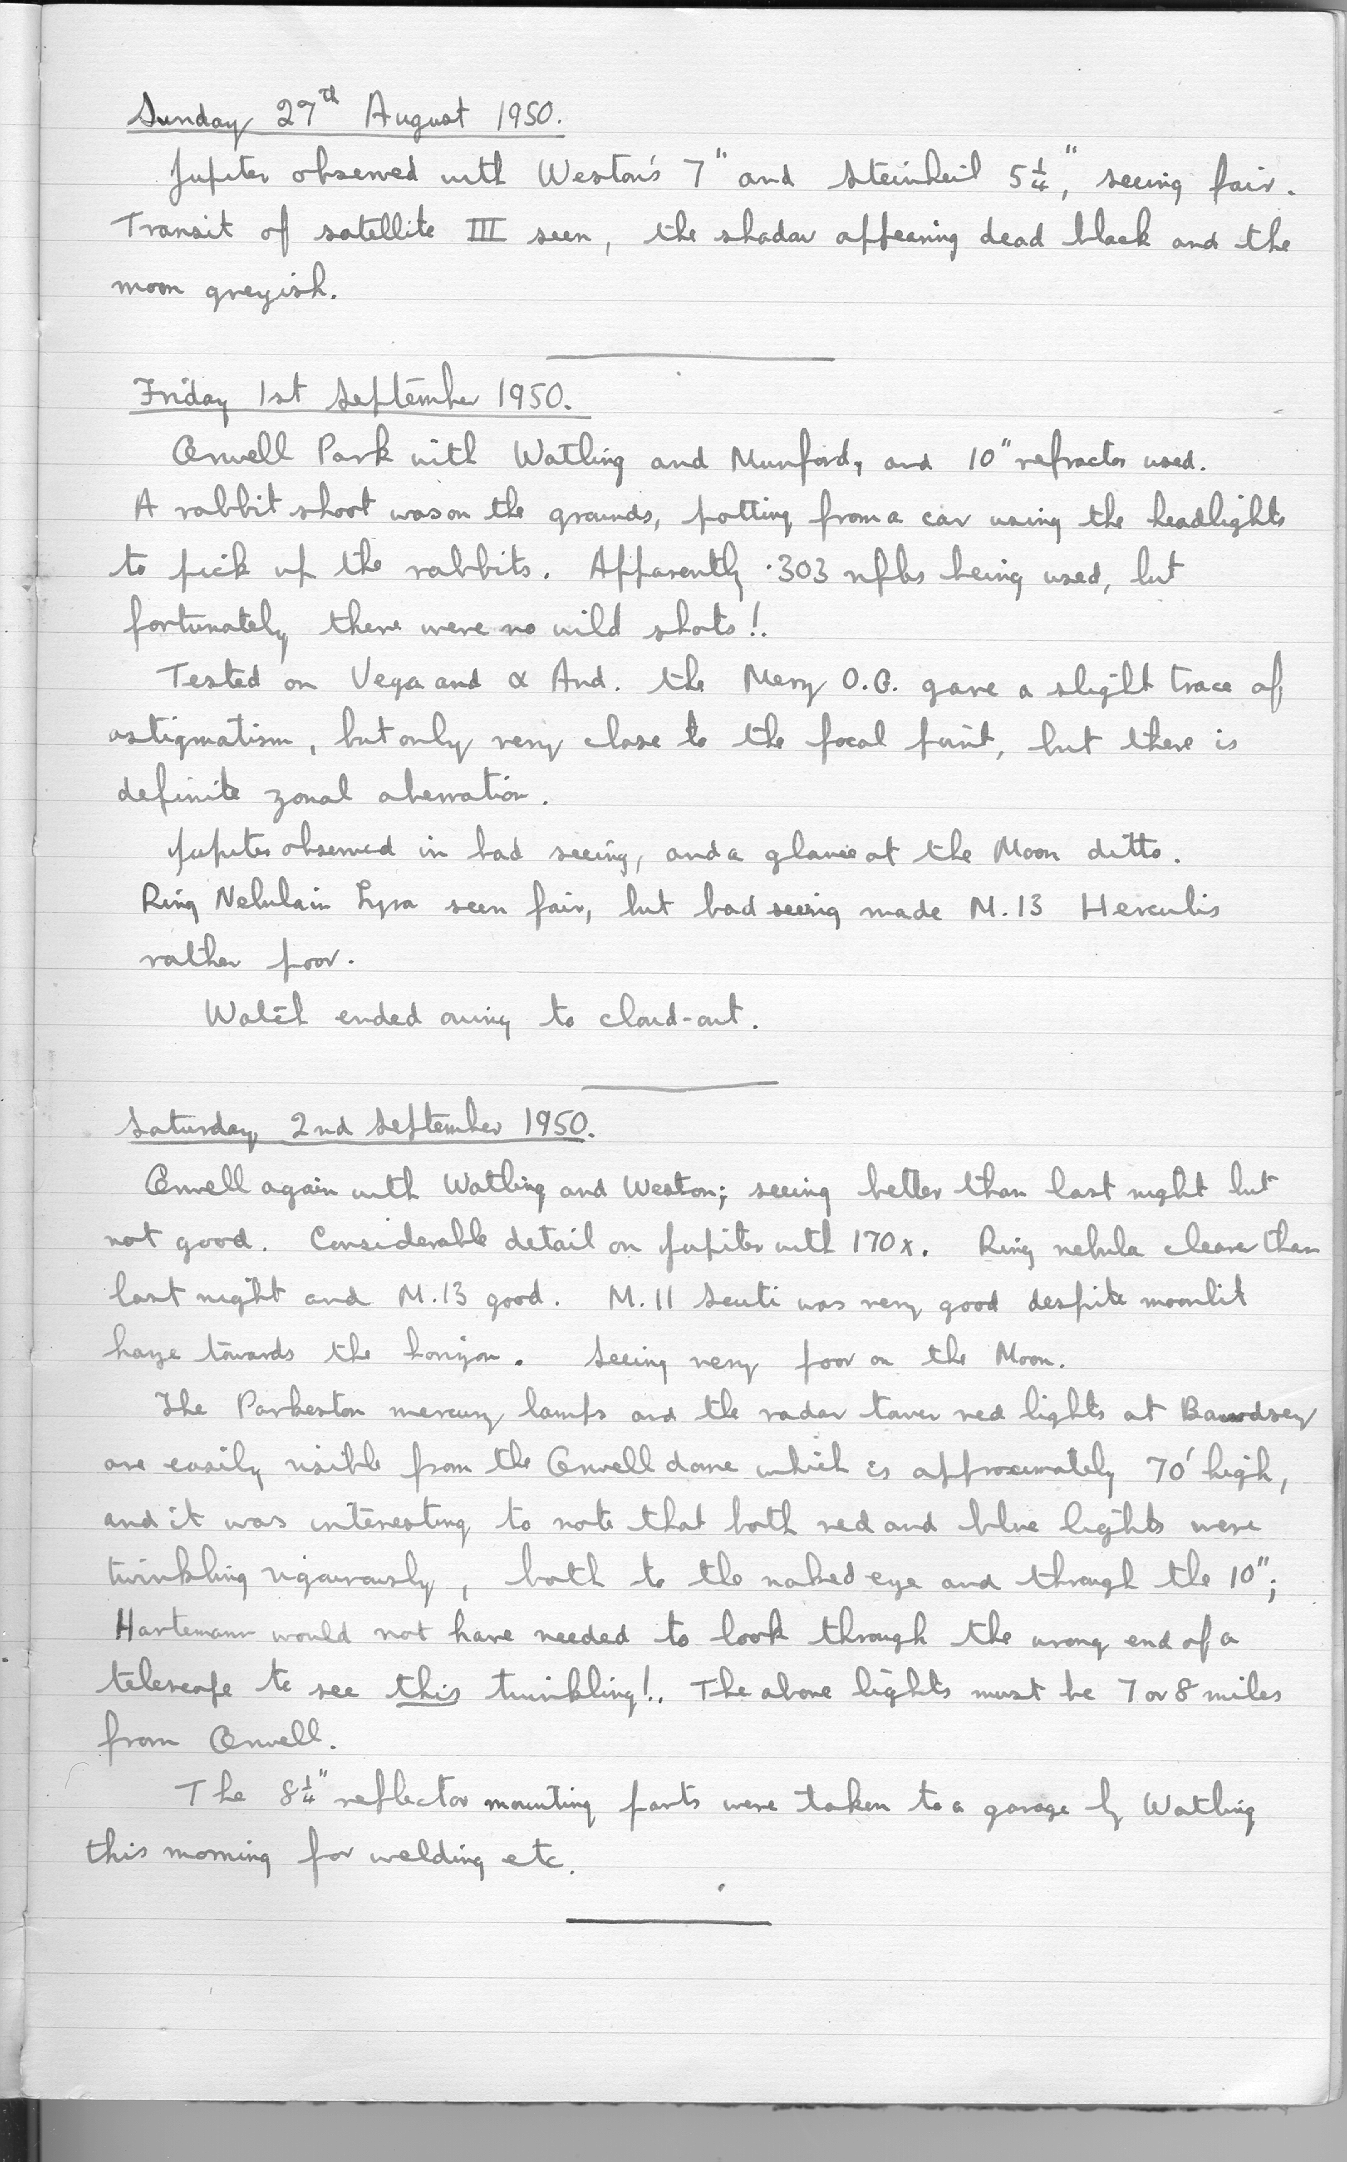 Sunday 27th August 1950.
Jupiter observed with Weston's 7" and Steinheil 5¼", seeing fair.
Transit of satellite III seen, the shadow appearing dead black and the
moon greyish.
Friday 1st September 1950.
Orwell Park with Watling and Munford, and 10" refractor used.
A rabbit shoot was on the grounds, potting from a car using the headlights
to pick up the rabbits. Apparently .303 rifles being used, but
fortunately there were no wild shots!.
Tested on Vega and α And. the Merz O.G. gave a slight trace of
astigmatism, but only very close to the focal point, but there is
definite zonal aberration.
Jupiter observed in bad seeing, and a glance at the Moon ditto.
Ring Nebula in Lyra seen fair, but bad seeing made M.13 Herculis
rather poor.
Watch ended owing to cloud-out.
Saturday 2nd September 1950.
Orwell again with Watling and Weston; seeing better than last night but
not good. Considerable detail on Jupiter with 170x. Ring nebula clearer than
last night and M.13 good. M.11 Scuti was very good despite moonlit
haze towards the horizon. Seeing very poor on the Moon.
The Parkeston mercury lamps and the radar tower red lights at Bawdsey
are easily visible from the Orwell dome which is approximately 70' high,
and it was interesting to note that both red and blue lights were
twinkling vigourously, both to the naked eye and through the 10";
Hartemann would not have needed to look through the wrong end of a
telescope to see this twinkling!. The above lights must be 7 or 8 miles
from Orwell.
The 8¼" reflector mounting parts were taken to a garage by Watling
this morning for welding etc.